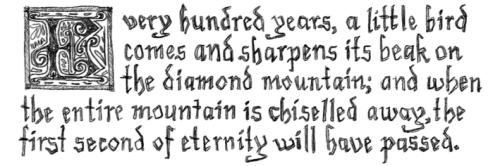 Every hundred years, a little bird
comes and sharpens its beak on
the diamond mountain; and when
the entire mountain is chiselled away, the
first second of eternity will have passed.